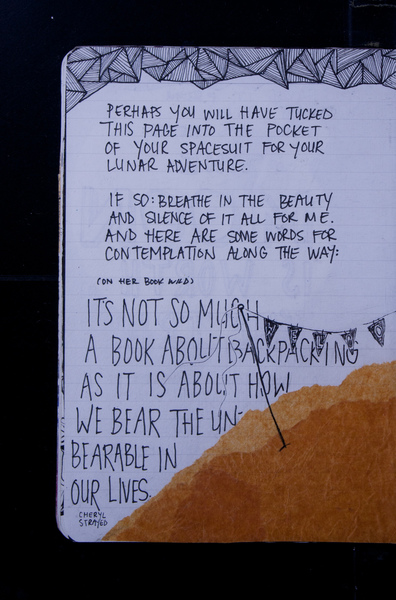 PERHAPS YOU WILL HAVE TUCKED
THIS PAGE INTO THE POCKET
OF YOUR SPACESUIT FOR YOUR
LUNAR ADVENTURE.
IF SO: BREATHE IN THE BEAUTY
AND SILENCE OF IT ALL FOR ME.
AND HERE ARE SOME WORDS FOR
CONTEMPLATION ALONG THE WAY:
(ON HER BOOK WILD)
IT'S NOT SO MUCH
A BOOK ABOUT BACKPACKING
AS IT IS ABOUT HOW
WE BEAR THE UN-
BEARABLE IN
OUR LIVES.
CHERYL
STRAYED